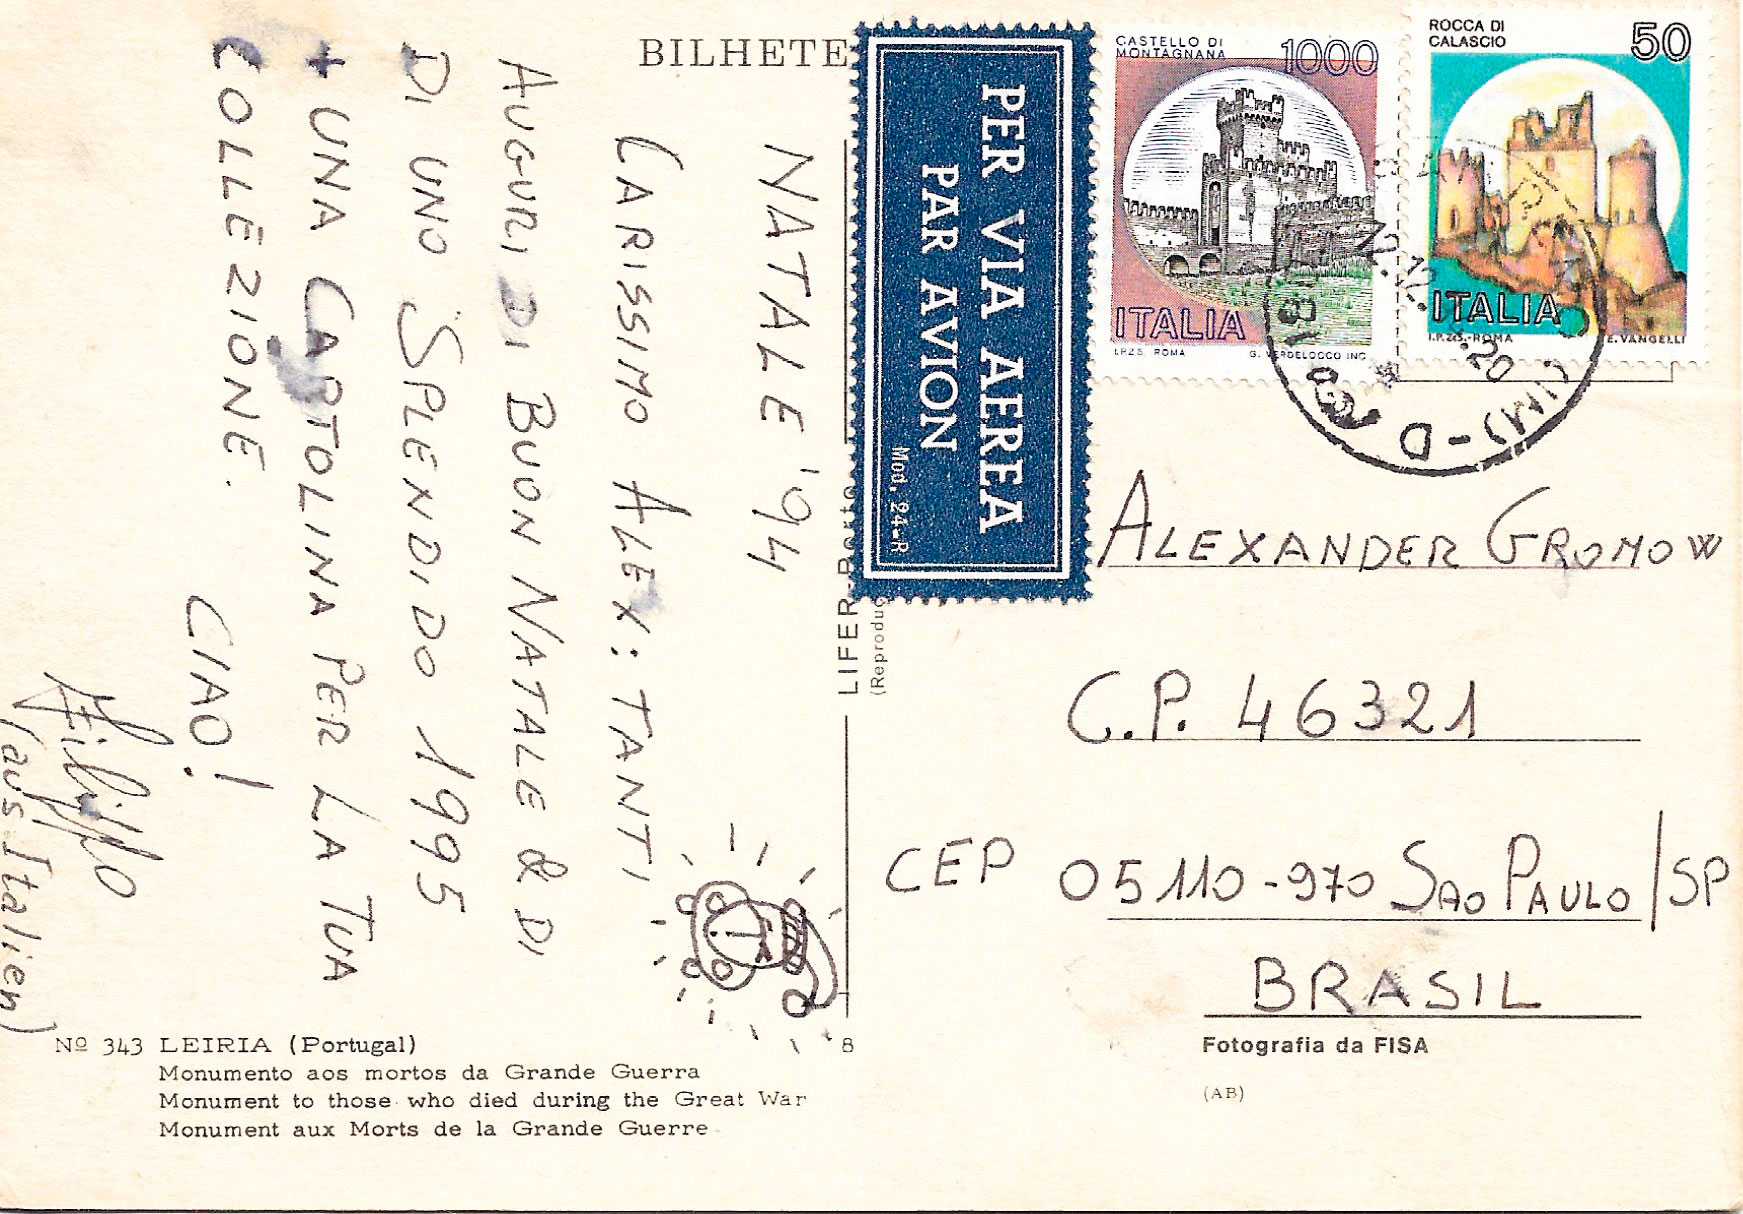 BILHETE
NATALE '94
CARISSIMO ALEX: TANTI
AUGURI DI BUON NATALE & DI
DI UNO SPLENDIDO 1995
+ UNA CARTOLINA PER LA TUA
COLLEZIONE.
CIAO!
Filippo
(aus Italien)
Nº 343 LEIRIA (Portugal)
Monumento aos mortos da Grande Guerra
Monument to those who died during the Great War
Monument aux Morts de la Grande Guerre
8
LIFER
(Reproduç
PER VIA AEREA
PAR AVION
Mod. 24-R
CASTELLO DI
MONTAGNANA
1000
ITALIA
I.P.Z.S. ROMA G. VERDELOCCO INC.
ROCCA DI
CALASCIO
50
ITALIA
I.P.Z.S.-ROMA E. VANGELLI
12.12.
20
ALEXANDER GROMOW
C.P. 46321
CEP 05110-970 SAO PAULO/SP
BRASIL
Fotografia da FISA
(AB)